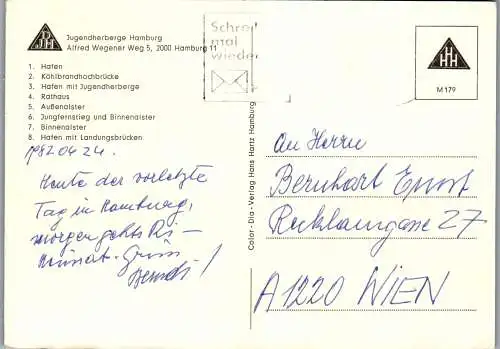 DJH
Jugendherberge Hamburg
Alfred Wegener Weg 5, 2000 Hamburg 11
1. Hafen
2. Köhlbrandhochbrücke
3. Hafen mit Jugendherberge
4. Rathaus
5. Außenalster
6. Jungfernstieg und Binnenalster
7. Binnenalster
8. Hafen mit Landungsbrücken
1982 04 24.
Heute der vorletzte
Tag in Hamburg,
morgen gehts Ri-
Gruss
Schreib
mal
wieder
Color-Dia-Verlag Hans Hartz Hamburg
HHH
M 179
An Herrn
Bernhart Ernst
27
A 1220 WIEN